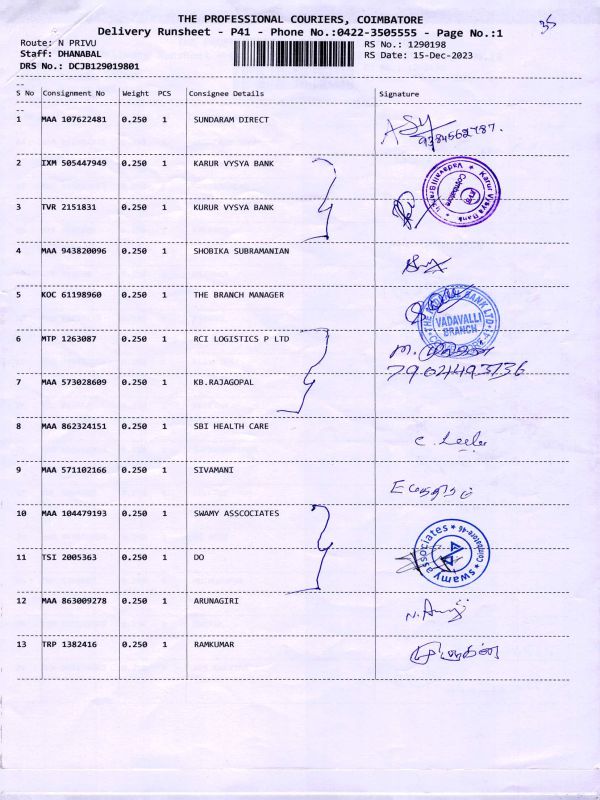 35
THE PROFESSIONAL COURIERS, COIMBATORE
Delivery Runsheet - P41 - Phone No.:0422-3505555 - Page No.:1
Route: N PRIVU RS No.: 1290198
Staff: DHANABAL RS Date: 15-Dec-2023
DRS No.: DCJB129019801
S No Consignment No Weight PCS Consignee Details Signature
1 MAA 107622481 0.250 1 SUNDARAM DIRECT
9384562787.
2 IXM 505447949 0.250 1 KARUR VYSYA BANK
Karur Vysya Bank
Coimbatore
3 TVR 2151831 0.250 1 KURUR VYSYA BANK
4 MAA 943820096 0.250 1 SHOBIKA SUBRAMANIAN
5 KOC 61198960 0.250 1 THE BRANCH MANAGER
VADAVALLI
BRANCH
6 MTP 1263087 0.250 1 RCI LOGISTICS P LTD
7904493736
7 MAA 573028609 0.250 1 KB.RAJAGOPAL
8 MAA 862324151 0.250 1 SBI HEALTH CARE
C. Leela
9 MAA 571102166 0.250 1 SIVAMANI
10 MAA 104479193 0.250 1 SWAMY ASSCOCIATES
swamy associates * Coimbatore-46 *
11 TSI 2005363 0.250 1 DO
12 MAA 863009278 0.250 1 ARUNAGIRI
13 TRP 1382416 0.250 1 RAMKUMAR